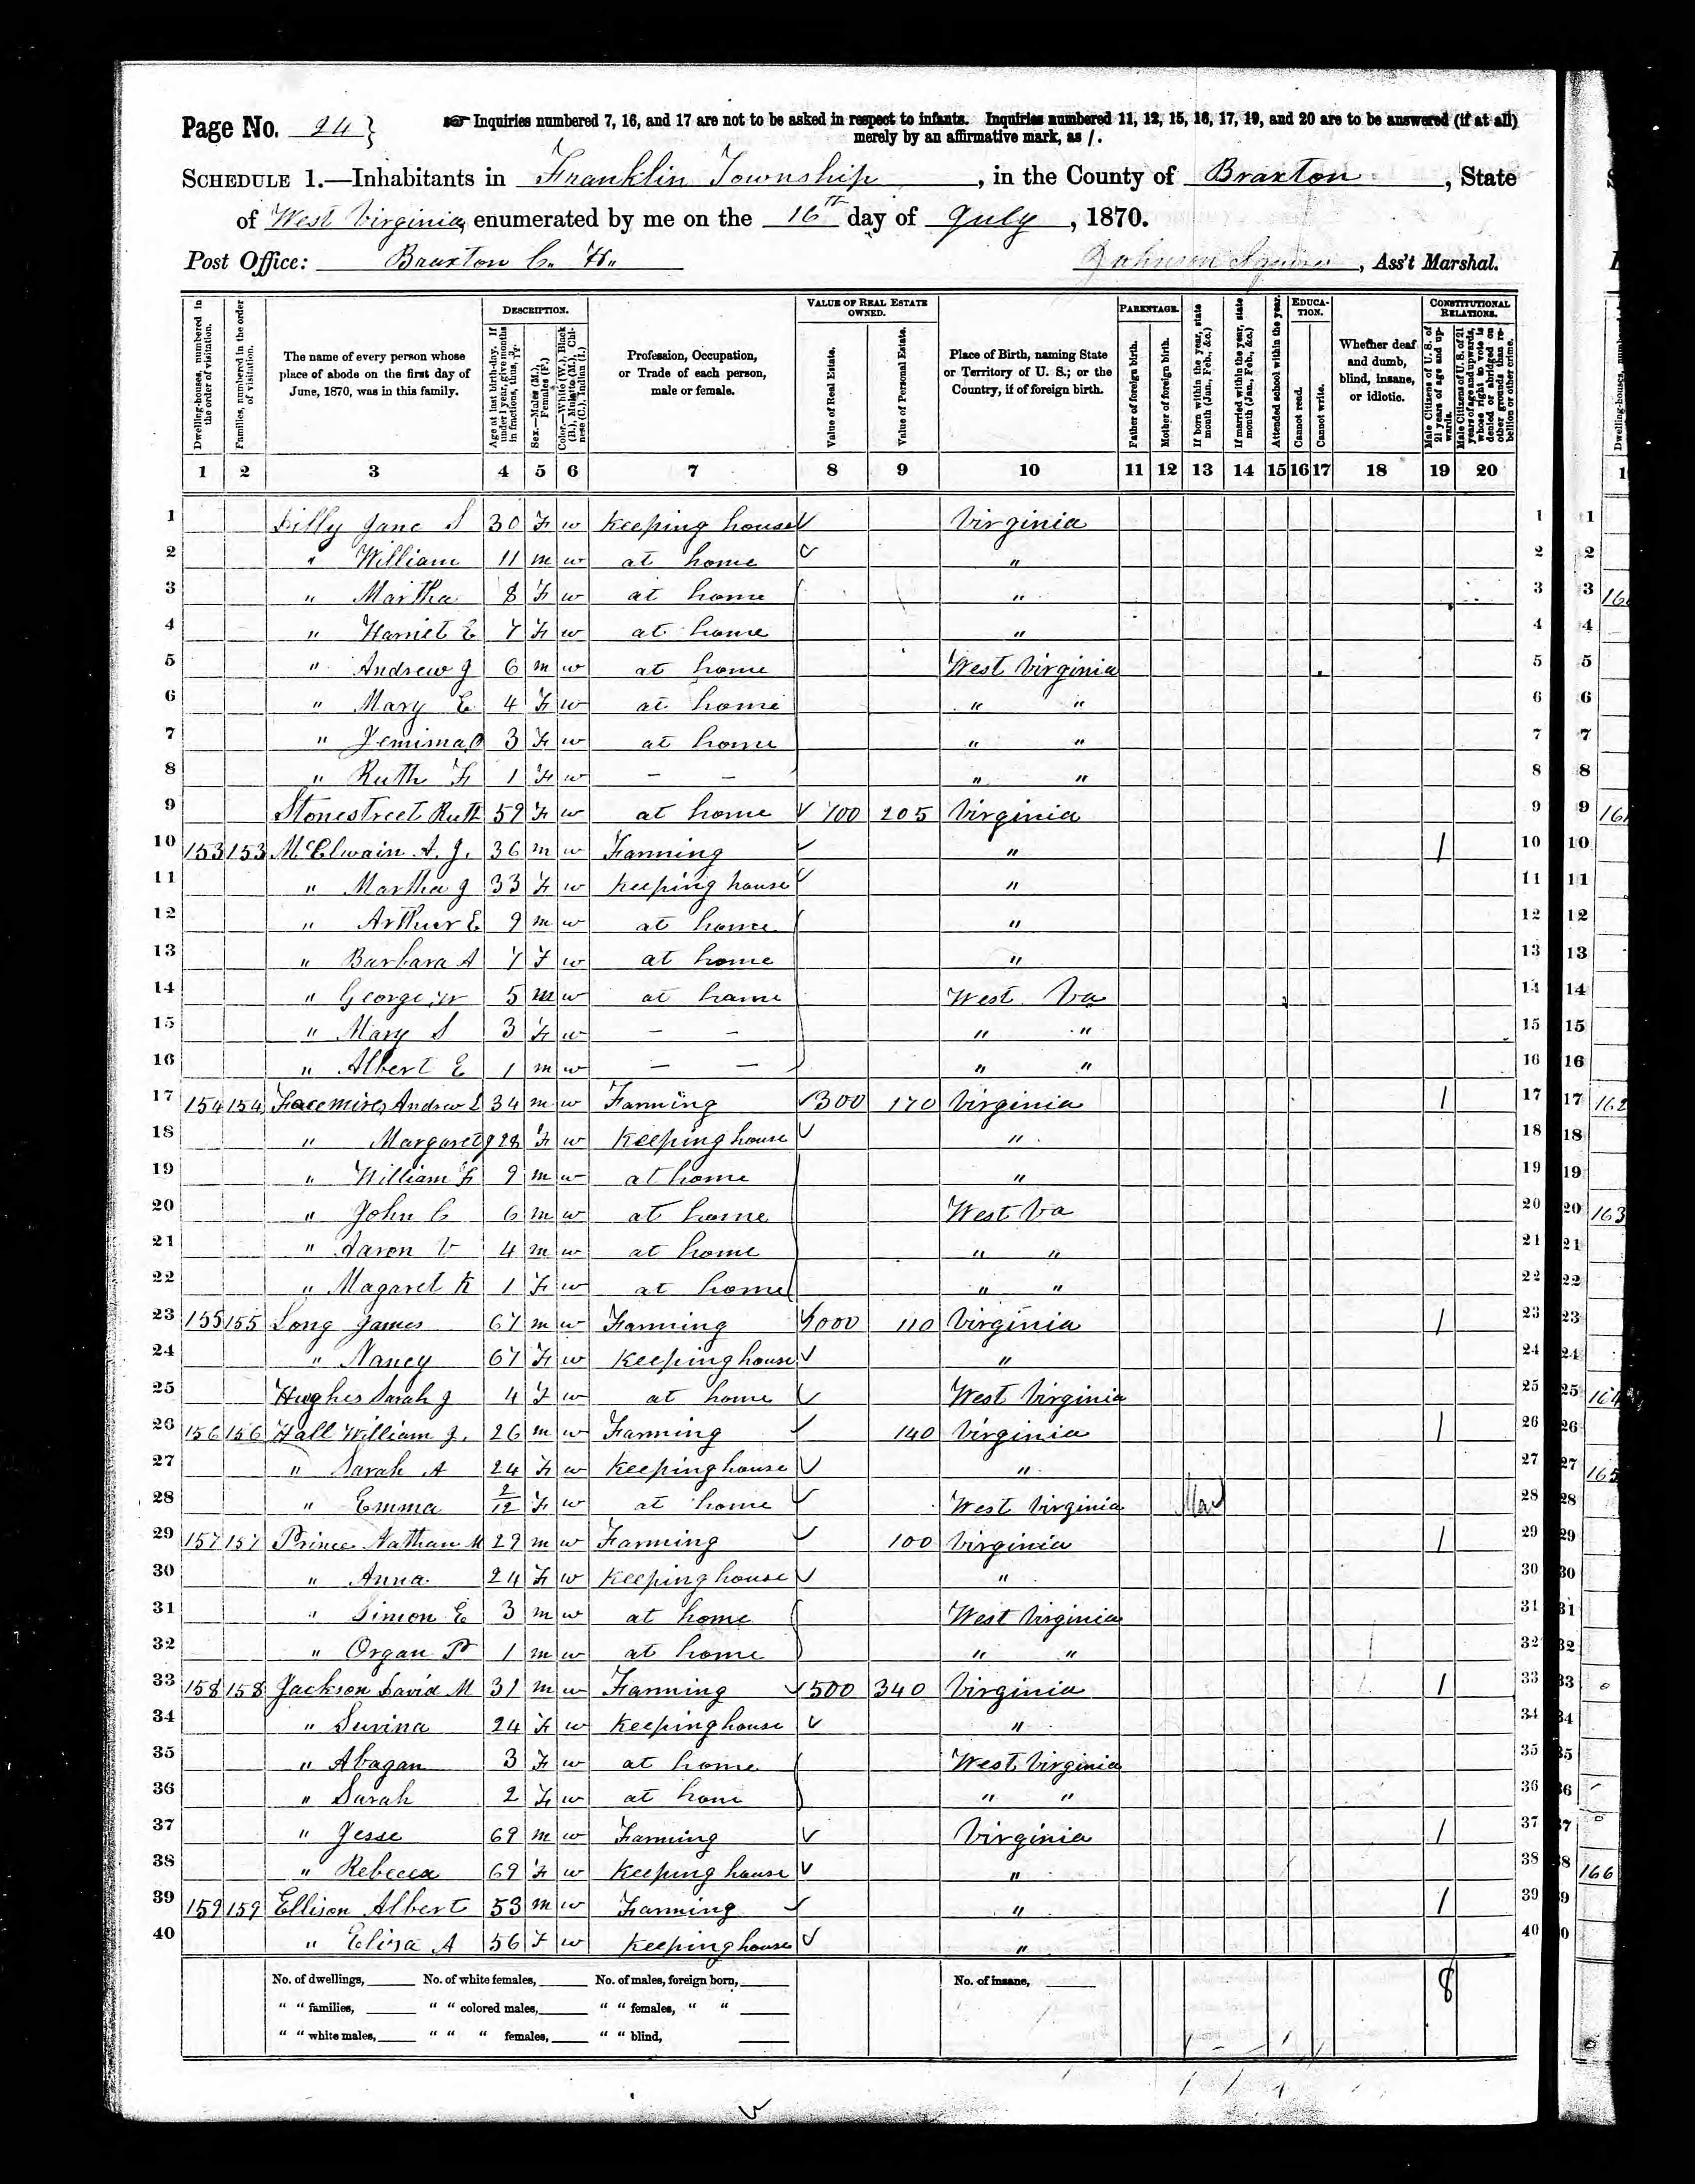 Page No. 24 }
☞ Inquiries numbered 7, 16, and 17 are not to be asked in respect to infants. Inquiries numbered 11, 12, 15, 16, 17, 19, and 20 are to be answered (if at all)
merely by an affirmative mark, as /.
SCHEDULE 1.—Inhabitants in Franklin Township, in the County of Braxton, State
of West Virginia, enumerated by me on the 16th day of July, 1870.
Post Office: Braxton C. H. Johnson Squires, Ass't Marshal.
Dwelling-houses, numbered in the order of visitation.
Families, numbered in the order of visitation.
The name of every person whose place of abode on the first day of June, 1870, was in this family.
DESCRIPTION.
Age at last birth-day. If under 1 year, give months in fractions, thus, 3/12.
Sex.—Males (M.), Females (F.)
Color.—White (W.), Black (B.), Mulatto (M.), Chinese (C.), Indian (I.)
Profession, Occupation, or Trade of each person, male or female.
VALUE OF REAL ESTATE OWNED.
Value of Real Estate.
Value of Personal Estate.
Place of Birth, naming State or Territory of U. S.; or the Country, if of foreign birth.
PARENTAGE.
Father of foreign birth.
Mother of foreign birth.
If born within the year, state month (Jan., Feb., &c.)
If married within the year, state month (Jan., Feb., &c.)
Attended school within the year.
EDUCATION.
Cannot read.
Cannot write.
Whether deaf and dumb, blind, insane, or idiotic.
CONSTITUTIONAL RELATIONS.
Male Citizens of U. S. of 21 years of age and upwards.
Male Citizens of U. S. of 21 years of age and upwards, whose right to vote is denied or abridged on other grounds than rebellion or other crime.
1 2 3 4 5 6 7 8 9 10 11 12 13 14 15 16 17 18 19 20
1 Dilly Jane S 30 F w Keeping house Virginia 1
2 " William 11 m w at home " 2
3 " Martha 8 F w at home " 3
4 " Harriet E 7 F w at home " 4
5 " Andrew J 6 m w at home West Virginia 5
6 " Mary E 4 F w at home " " 6
7 " Jemima O 3 F w at home " " 7
8 " Ruth F 1 F w – – " " 8
9 Stonestreet Ruth 59 F w at home 700 205 Virginia 9
10 153 153 McElwain A. J. 36 m w Farming " / 10
11 " Martha J 33 F w Keeping house " 11
12 " Arthur E 9 m w at home " 12
13 " Barbara A 7 F w at home " 13
14 " George W 5 m w at home West Va 14
15 " Mary S 3 F w – – " " 15
16 " Albert E 1 m w – – " " 16
17 154 154 Facemires Andrew L 34 m w Farming 300 170 Virginia / 17
18 " Margaret J 28 F w Keeping house " 18
19 " William F 9 m w at home " 19
20 " John C 6 m w at home West Va 20
21 " Aaron V 4 m w at home " " 21
22 " Magaret K 1 F w at home " " 22
23 155 155 Long James 67 m w Farming 1000 110 Virginia / 23
24 " Nancy 67 F w Keeping house " 24
25 Hughes Sarah J 4 F w at home West Virginia 25
26 156 156 Hall William J. 26 m w Farming 140 Virginia / 26
27 " Sarah A 24 F w Keeping house " 27
28 " Emma 2/12 F w at home West Virginia 28
29 157 157 Prince Nathan M 29 m w Farming 100 Virginia / 29
30 " Anna 24 F w Keeping house " 30
31 " Simon E 3 m w at home West Virginia 31
32 " Organ P 1 m w at home " " 32
33 158 158 Jackson David M 31 m w Farming 500 340 Virginia / 33
34 " Surina 24 F w Keeping house " 34
35 " Abagan 3 F w at home West Virginia 35
36 " Sarah 2 F w at hom " " 36
37 " Jesse 69 m w Farming Virginia / 37
38 " Rebecca 69 F w Keeping house " 38
39 159 159 Ellison Albert 53 m w Farming " / 39
40 " Eliza A 56 F w Keeping house " 40
No. of dwellings, No. of white females, No. of males, foreign born, No. of insane, 8
" " families, " " colored males, " " females, " "
" " white males, " " " females, " " blind,